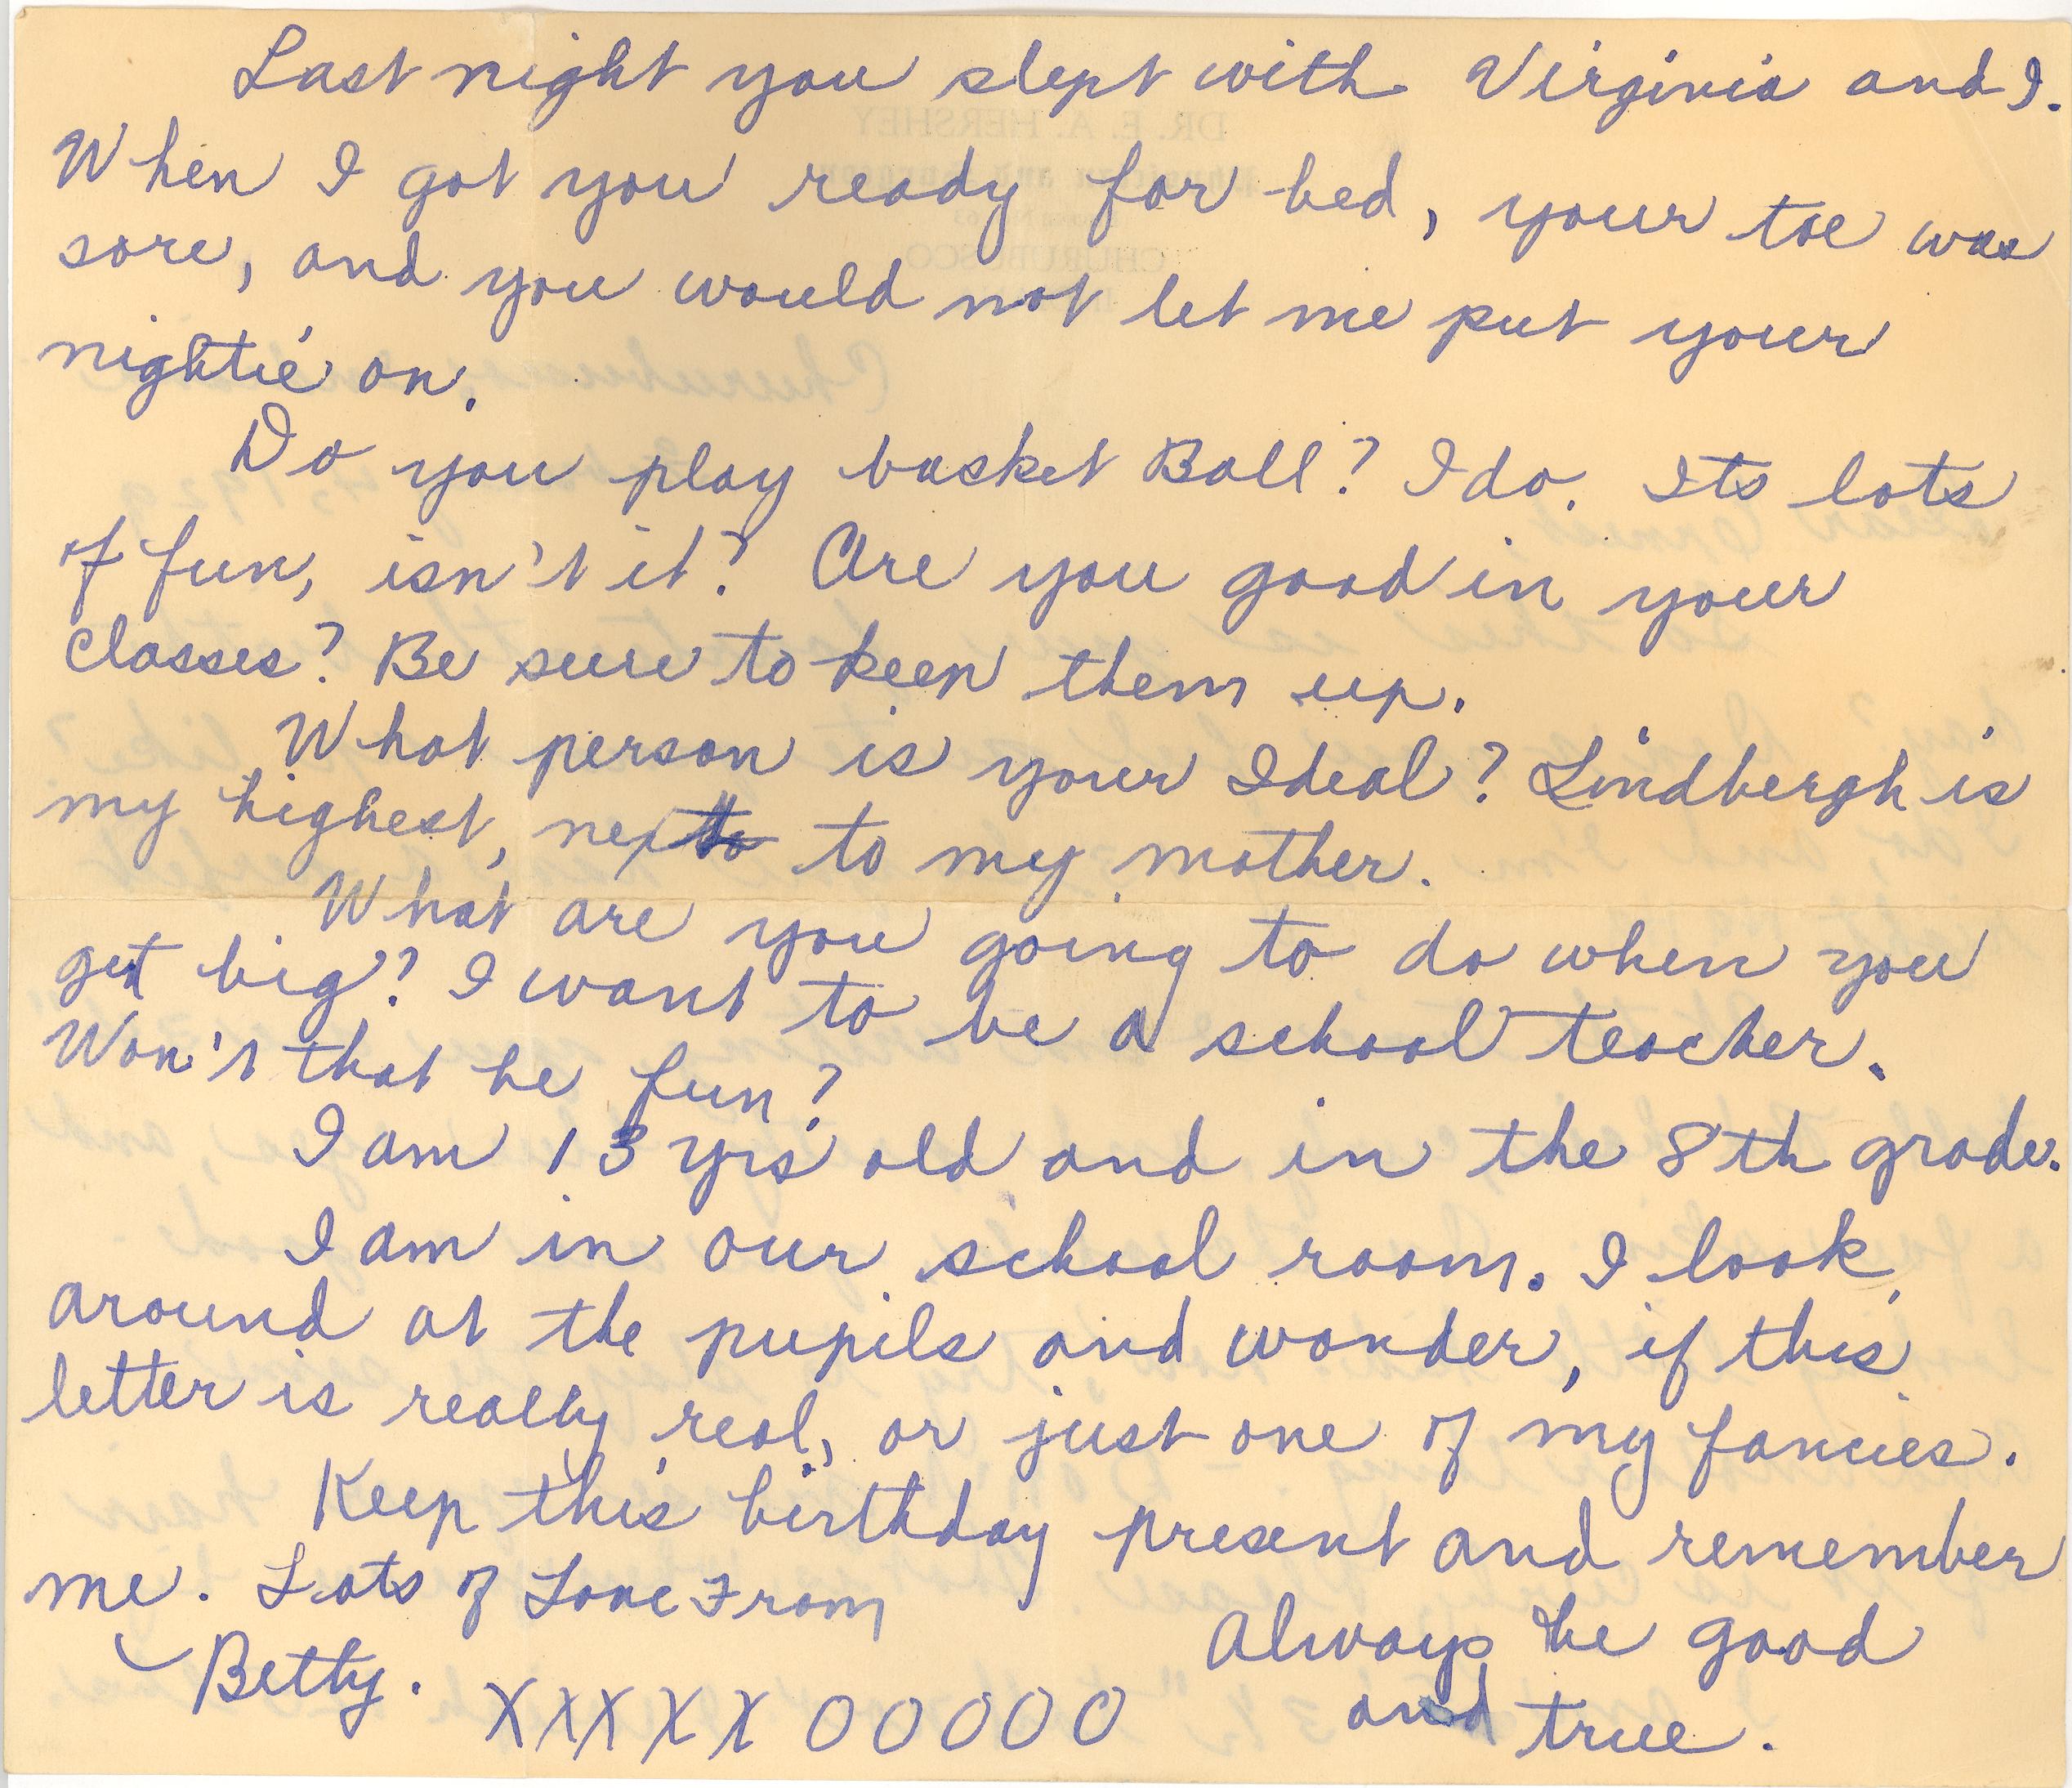 Last night you slept with Virginia and I.
When I got you ready for bed, your toe was
sore, and you would not let me put your
nightie on.
Do you play basket Ball? I do. Its lots
of fun, isn't it? Are you good in your
classes? Be sure to keep them up.
What person is your Ideal? Lindbergh is
my highest, next to my mother.
What are you going to do when you
get big? I want to be a school teacher.
Won't that be fun?
I am 13 yrs old and in the 8th grade.
I am in our school room. I look
around at the pupils and wonder, if this
letter is really real, or just one of my fancies.
Keep this birthday present and remember
me. Lots of Love From
Betty. XXXXX OOOOO
Always be good
and true.
DR. E. A. HERSHEY
CHURUBUSCO